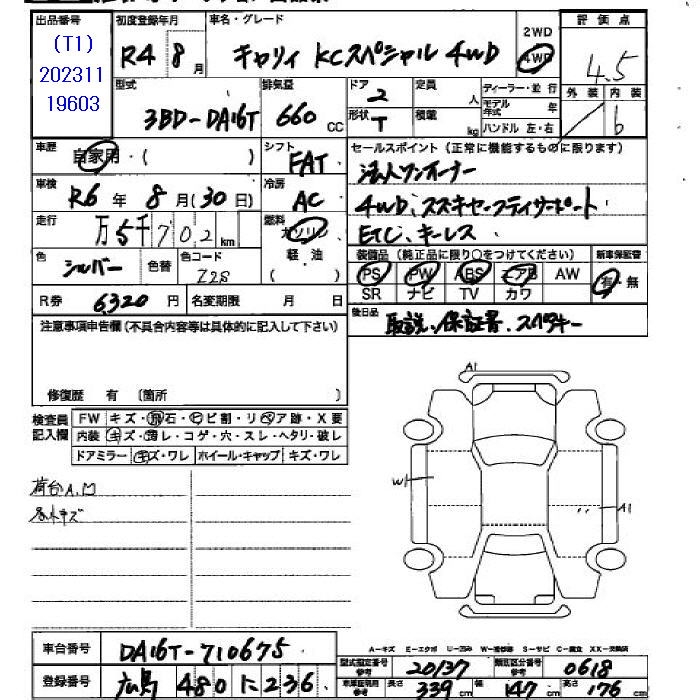 出品番号 初度登録年月 車名・グレード 2WD 評価点
(T1) R4 8月 キャリイ KCスペシャル 4WD 4WD 4.5
202311
19603
型式 排気量 ドア 定員 ディーラー・並行 外装 内装
3BD-DA16T 660 CC 2 人 モデル年式 年 b
形状 T 積載 kg ハンドル 左・右
車歴 自家用・( ) シフト FAT セールスポイント(正常に機能するものに限ります)
車検 R6年 8月(30日) 冷房 AC 法人ワンオーナー
4WD、スズキセーフティサポート
走行 万5千702km 燃料 ガソリン ETC、キーレス
軽・油
( )
色 シルバー 色替 色コード Z2S 装備品(純正品に限り○をつけてください) 新車保証書
PS PW ABS エアB AW 有・無
SR ナビ TV カワ
R券 6320円 名変期限 月 日
後日品 取説、保証書、スペアキー
注意事項申告欄(不具合内容等は具体的に記入して下さい)
修復歴 有 〔箇所 〕
検査員記入欄 FW キズ・飛石・ヒビ割・リペア跡・X要
内装 キズ・汚レ・コゲ・穴・スレ・ヘタリ・破レ
ドアミラー キズ・ワレ ホイール・キャップ キズ・ワレ
A1
荷台A、凹
W1
A1
車台番号 DA16T-710675
A-キズ E-エクボ U-凹み W-補修跡 S-サビ C-腐食 XX-交換済
型式指定番号 参考 20137 類別区分番号 参考 0618
登録番号 広島 480 に 236
長さ 339cm 幅 147cm 高さ 176cm